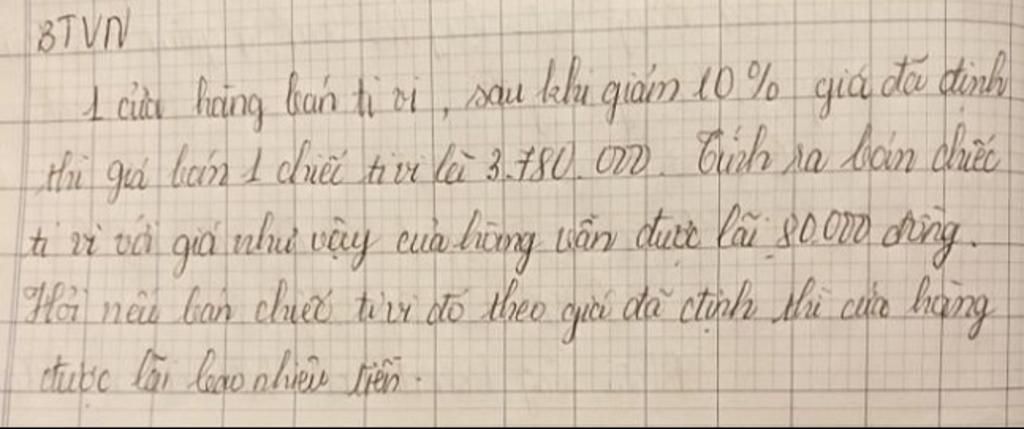 BTVN
1 cửa hàng bán ti vi, sau khi giảm 10% giá đã định
thì giá bán 1 chiếc ti vi là 3.780.000. Tính ra bán chiếc
ti vi với giá như vậy cửa hàng vẫn được lãi 80.000 đồng.
Hỏi nếu bán chiếc ti vi đó theo giá đã định thì cửa hàng
được lãi bao nhiêu tiền.